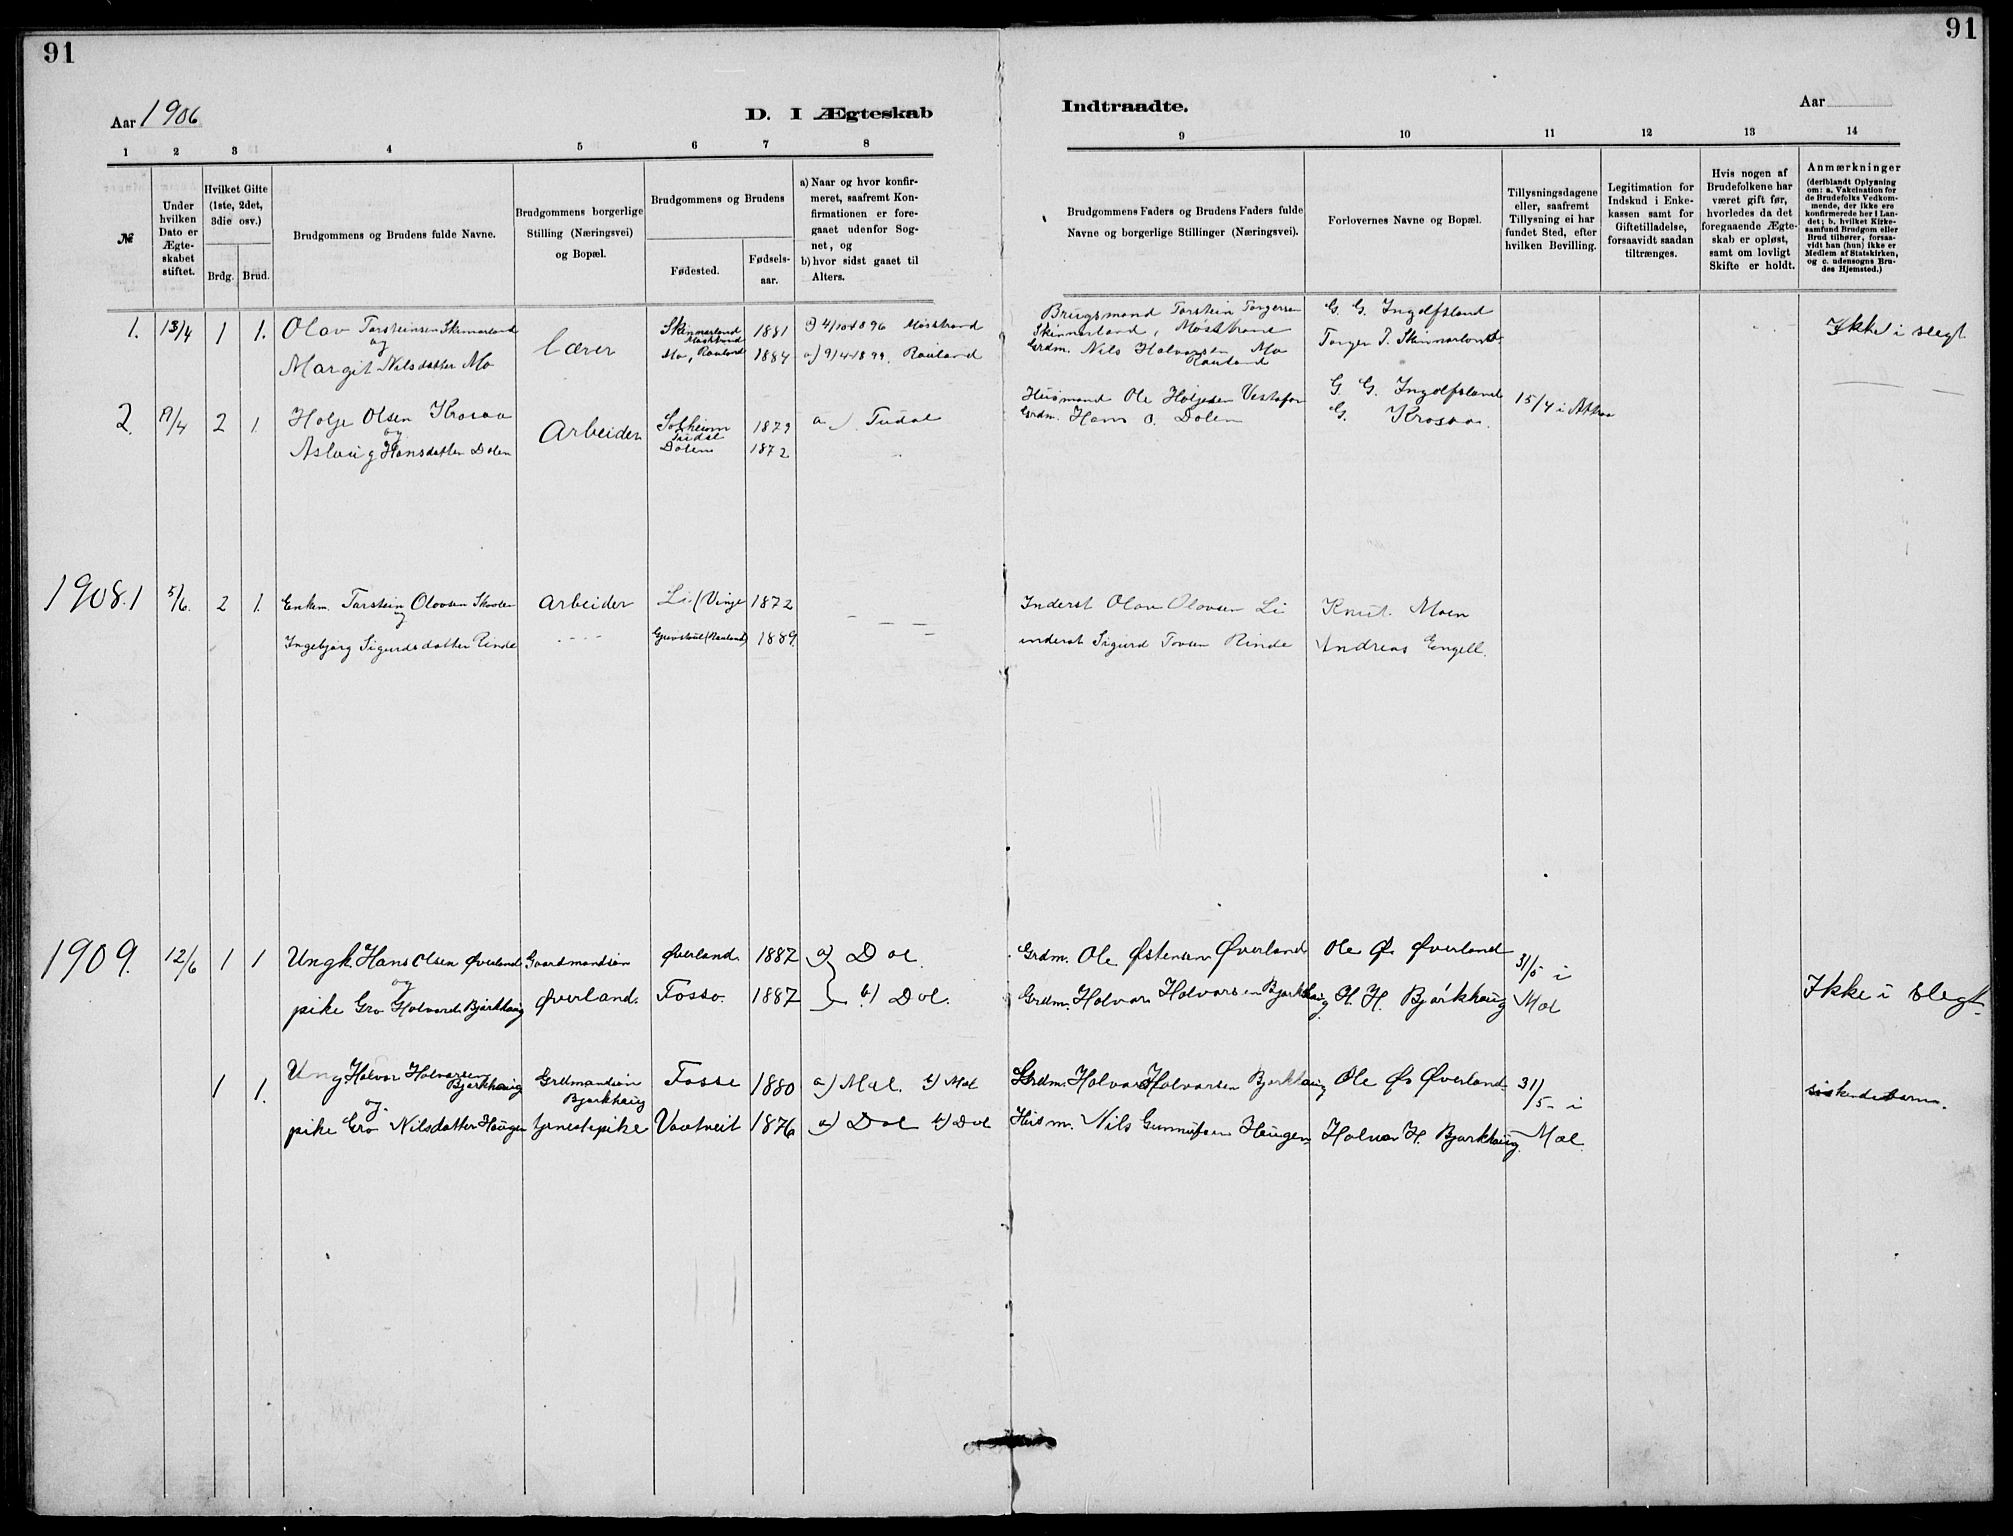 91
91
Aar 1906
D. I Ægteskab
Indtraadte.
Aar
1 2 3 4 5 6 7 8
9 10 11 12 13 14
№
Under hvilken Dato er Ægte-skabet stiftet.
Hvilket Gifte (1ste, 2det, 3die osv.)
Brdg. Brud.
Brudgommens og Brudens fulde Navne.
Brudgommens borgerlige Stilling (Næringsvei) og Bopæl.
Brudgommens og Brudens
Fødested.
Fødsels-aar.
a) Naar og hvor konfir-meret, saafremt Kon-firmationen er fore-gaaet udenfor Sog-net, og
b) hvor sidst gaaet til Alters.
Brudgommens Faders og Brudens Faders fulde Navne og borgerlige Stillinger (Næringsvei).
Forlovernes Navne og Bopæl.
Tillysningsdagene eller, saafremt Tillysning ei har fundet Sted, efter hvilken Bevilling.
Legitimation for Indskud i Enke-kassen samt for Giftetilladelse, forsaavidt saadan tiltrænges.
Hvis nogen af Brudefolkene har været gift før, hvorledes da det foregaaende Ægte-skab er opløst, samt om lovligt Skifte er holdt.
Anmærkninger
(deriblandt Oplysning om: a. Vakcination for de Brudefolks Vedkom-mende, der ikke ere konfirmerede her i Lan-det; b. hvilket Kirke-samfund Brudgom eller Brud tilhører, forsaa-vidt han (hun) ikke er Medlem af Statskirken, og c. udensogns Bru-des Hjemsted.)
1. 13/4 1 1. Olav Torsteinsen Skinnarland
og
Margit Nilsdatter Mo
Lærer
Skinnarland Møsstrand 1881 a) 4/10 1896 Møsstrand
Mo, Rauland 1884 a) 9/4 1899. Rauland
Brugsmand Torstein Torgersen Skinnarland, Møsstrand
Grdm. Nils Halvorsen Mo Rauland
G. G. Ingolfsland
Torger T. Skinnarland
Ikke i slegt
2. 17/4 2 1 Holje Olsen Krosoa
og
Aslaug Hansdatter Dolen
Arbeider
Solheim Tudal 1879 a) Tudal
Dolen 1872
Husmand Ole Holjesen Vestafor
Grdm. Hans O. Dolen
G. G. Ingolfsland
G. Krosoa.
15/4 i Attraa
1908. 1 5/6. 2 1. Enkm. Torstein Olavsen Skoden
og
Ingebjørg Sigurdsdatter Rinde
Arbeider
Li (Vinje 1872
(Rauland) 1889.
Inderst Olav Olovsen Li
inderst Sigurd Tovsen Rinde
Knut. Moen
Andreas Engell.
1909. 12/6 1 1 Ungk. Hans Olsen Øverland
og
pike Gro Halvordr. Bjørkhaug
Gaardmandssøn
Øverland.
Øverland. 1887 a) Dal.
Fosso. 1887 b) Dal.
Grdm. Ole Østensen Øverland
Grdm. Halvor Halvorsen Bjørkhaug
Ole Ø. Øverland
H. H. Bjørkhaug
31/5 i
Mæl
Ikke i slegt.
1 1. Ung. Halvor Halvorsen Bjørkhaug
og
pike Gro Nilsdatter Haugen
Grdmandssøn Bjørkhaug
tjenestepike
Fosse 1880 a) Mæl. b) Mæl
Vaatveit 1876 a) Dal b) Dal
Grdm. Halvor Halvorsen Bjørkhaug
Husm. Nils Gunnulfsen Haugen
Ole Ø. Øverland
Halvor H. Bjørkhaug.
31/5 - i
Mæl.
siskendebarn.